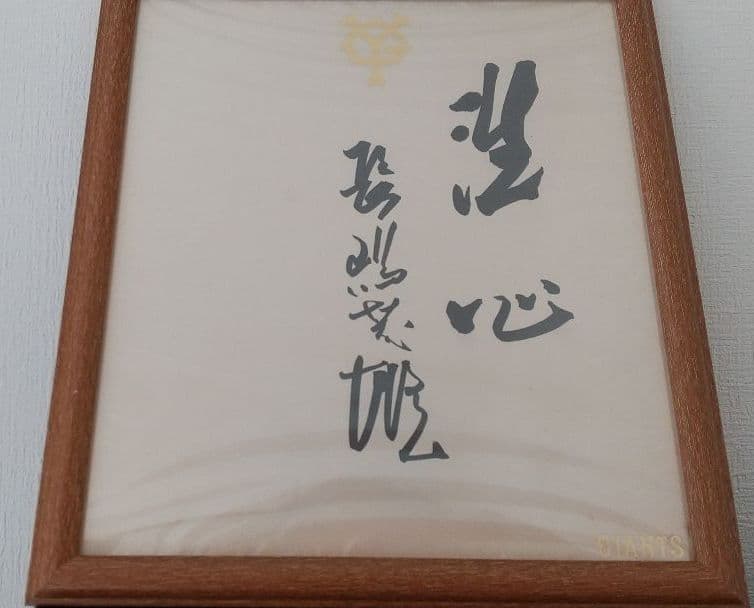 洗心
長嶋茂雄
GIANTS